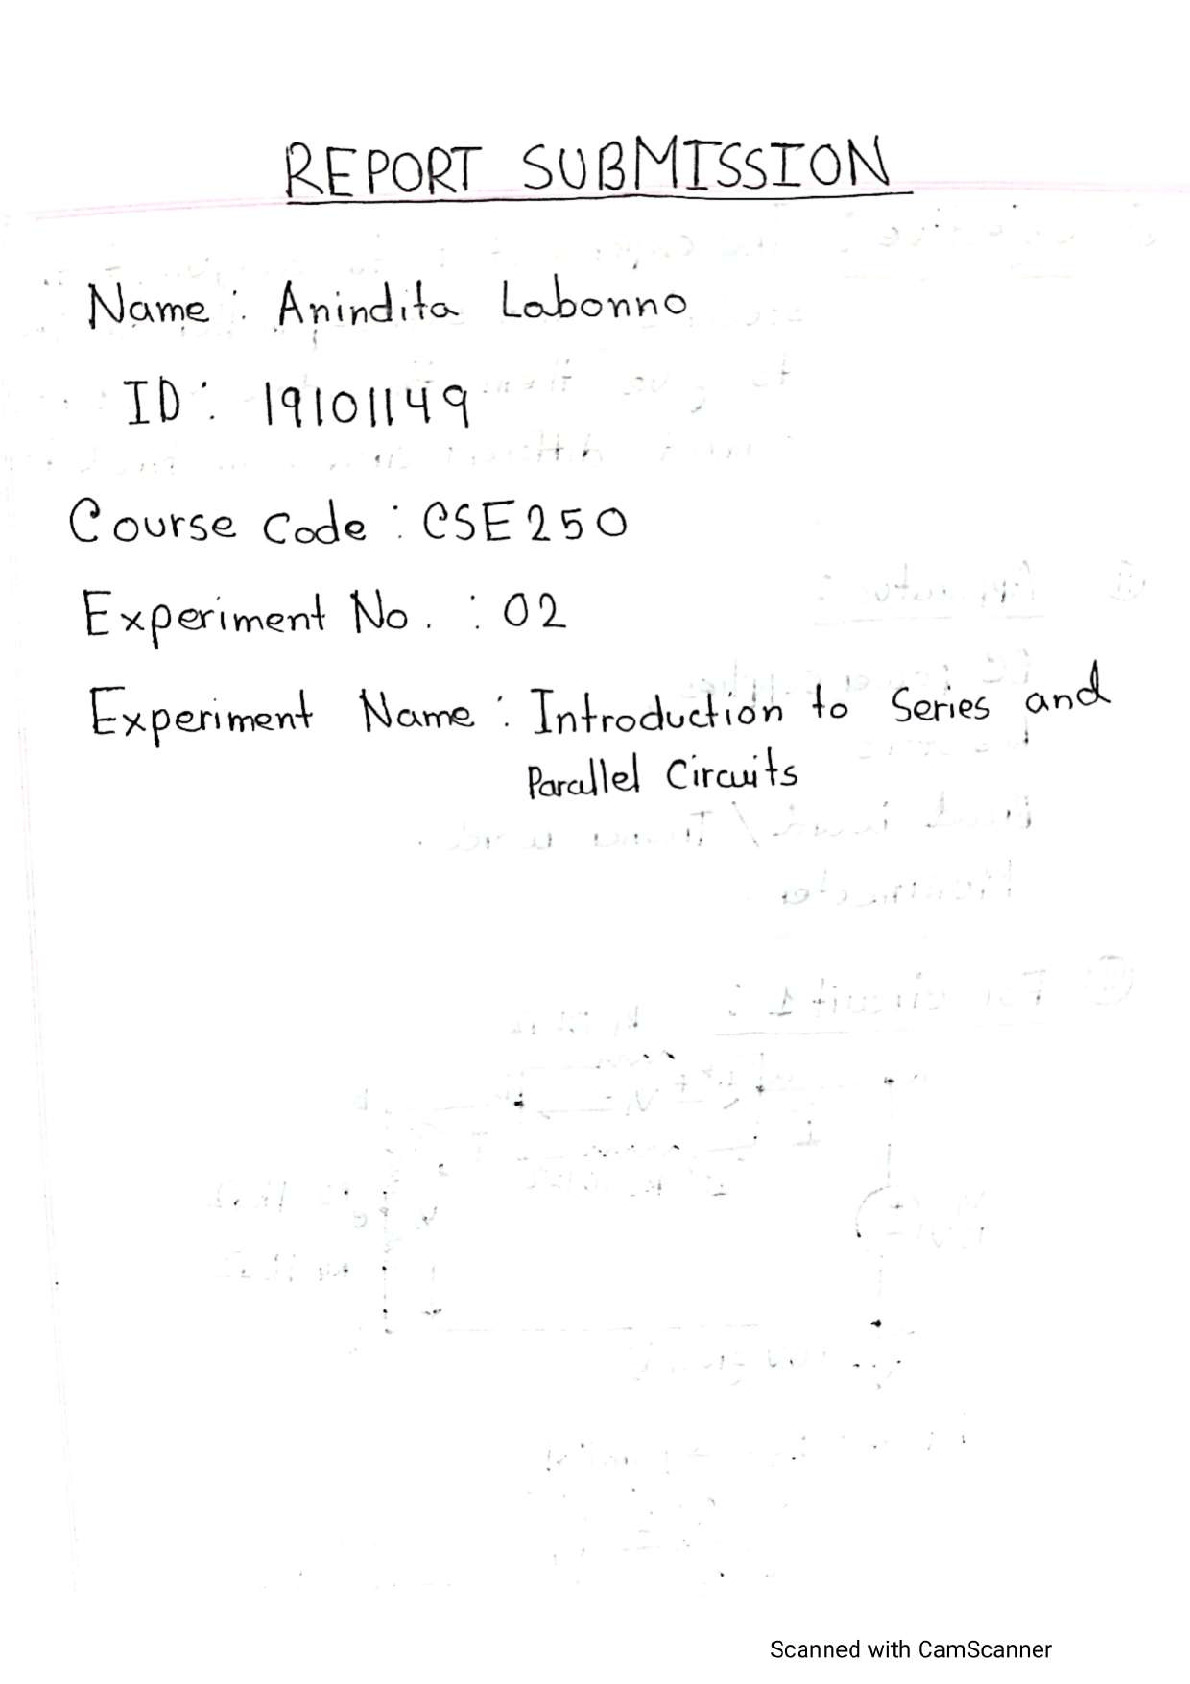 REPORT SUBMISSION
Name : Anindita Labonno
ID : 19101149
Course Code : CSE250
Experiment No. : 02
Experiment Name : Introduction to Series and
Parallel Circuits
Scanned with CamScanner